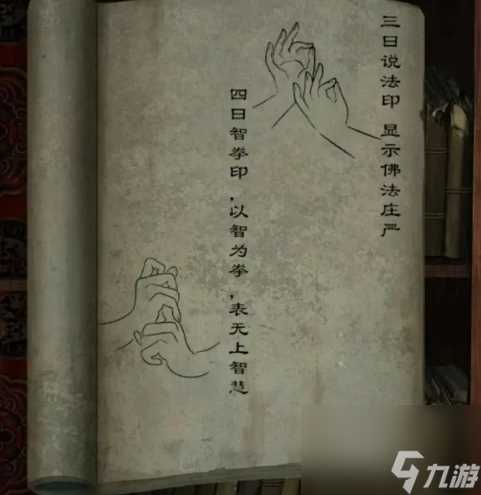 三曰说法印 显示佛法庄严
四曰智拳印，以智为拳，表无上智慧
九游